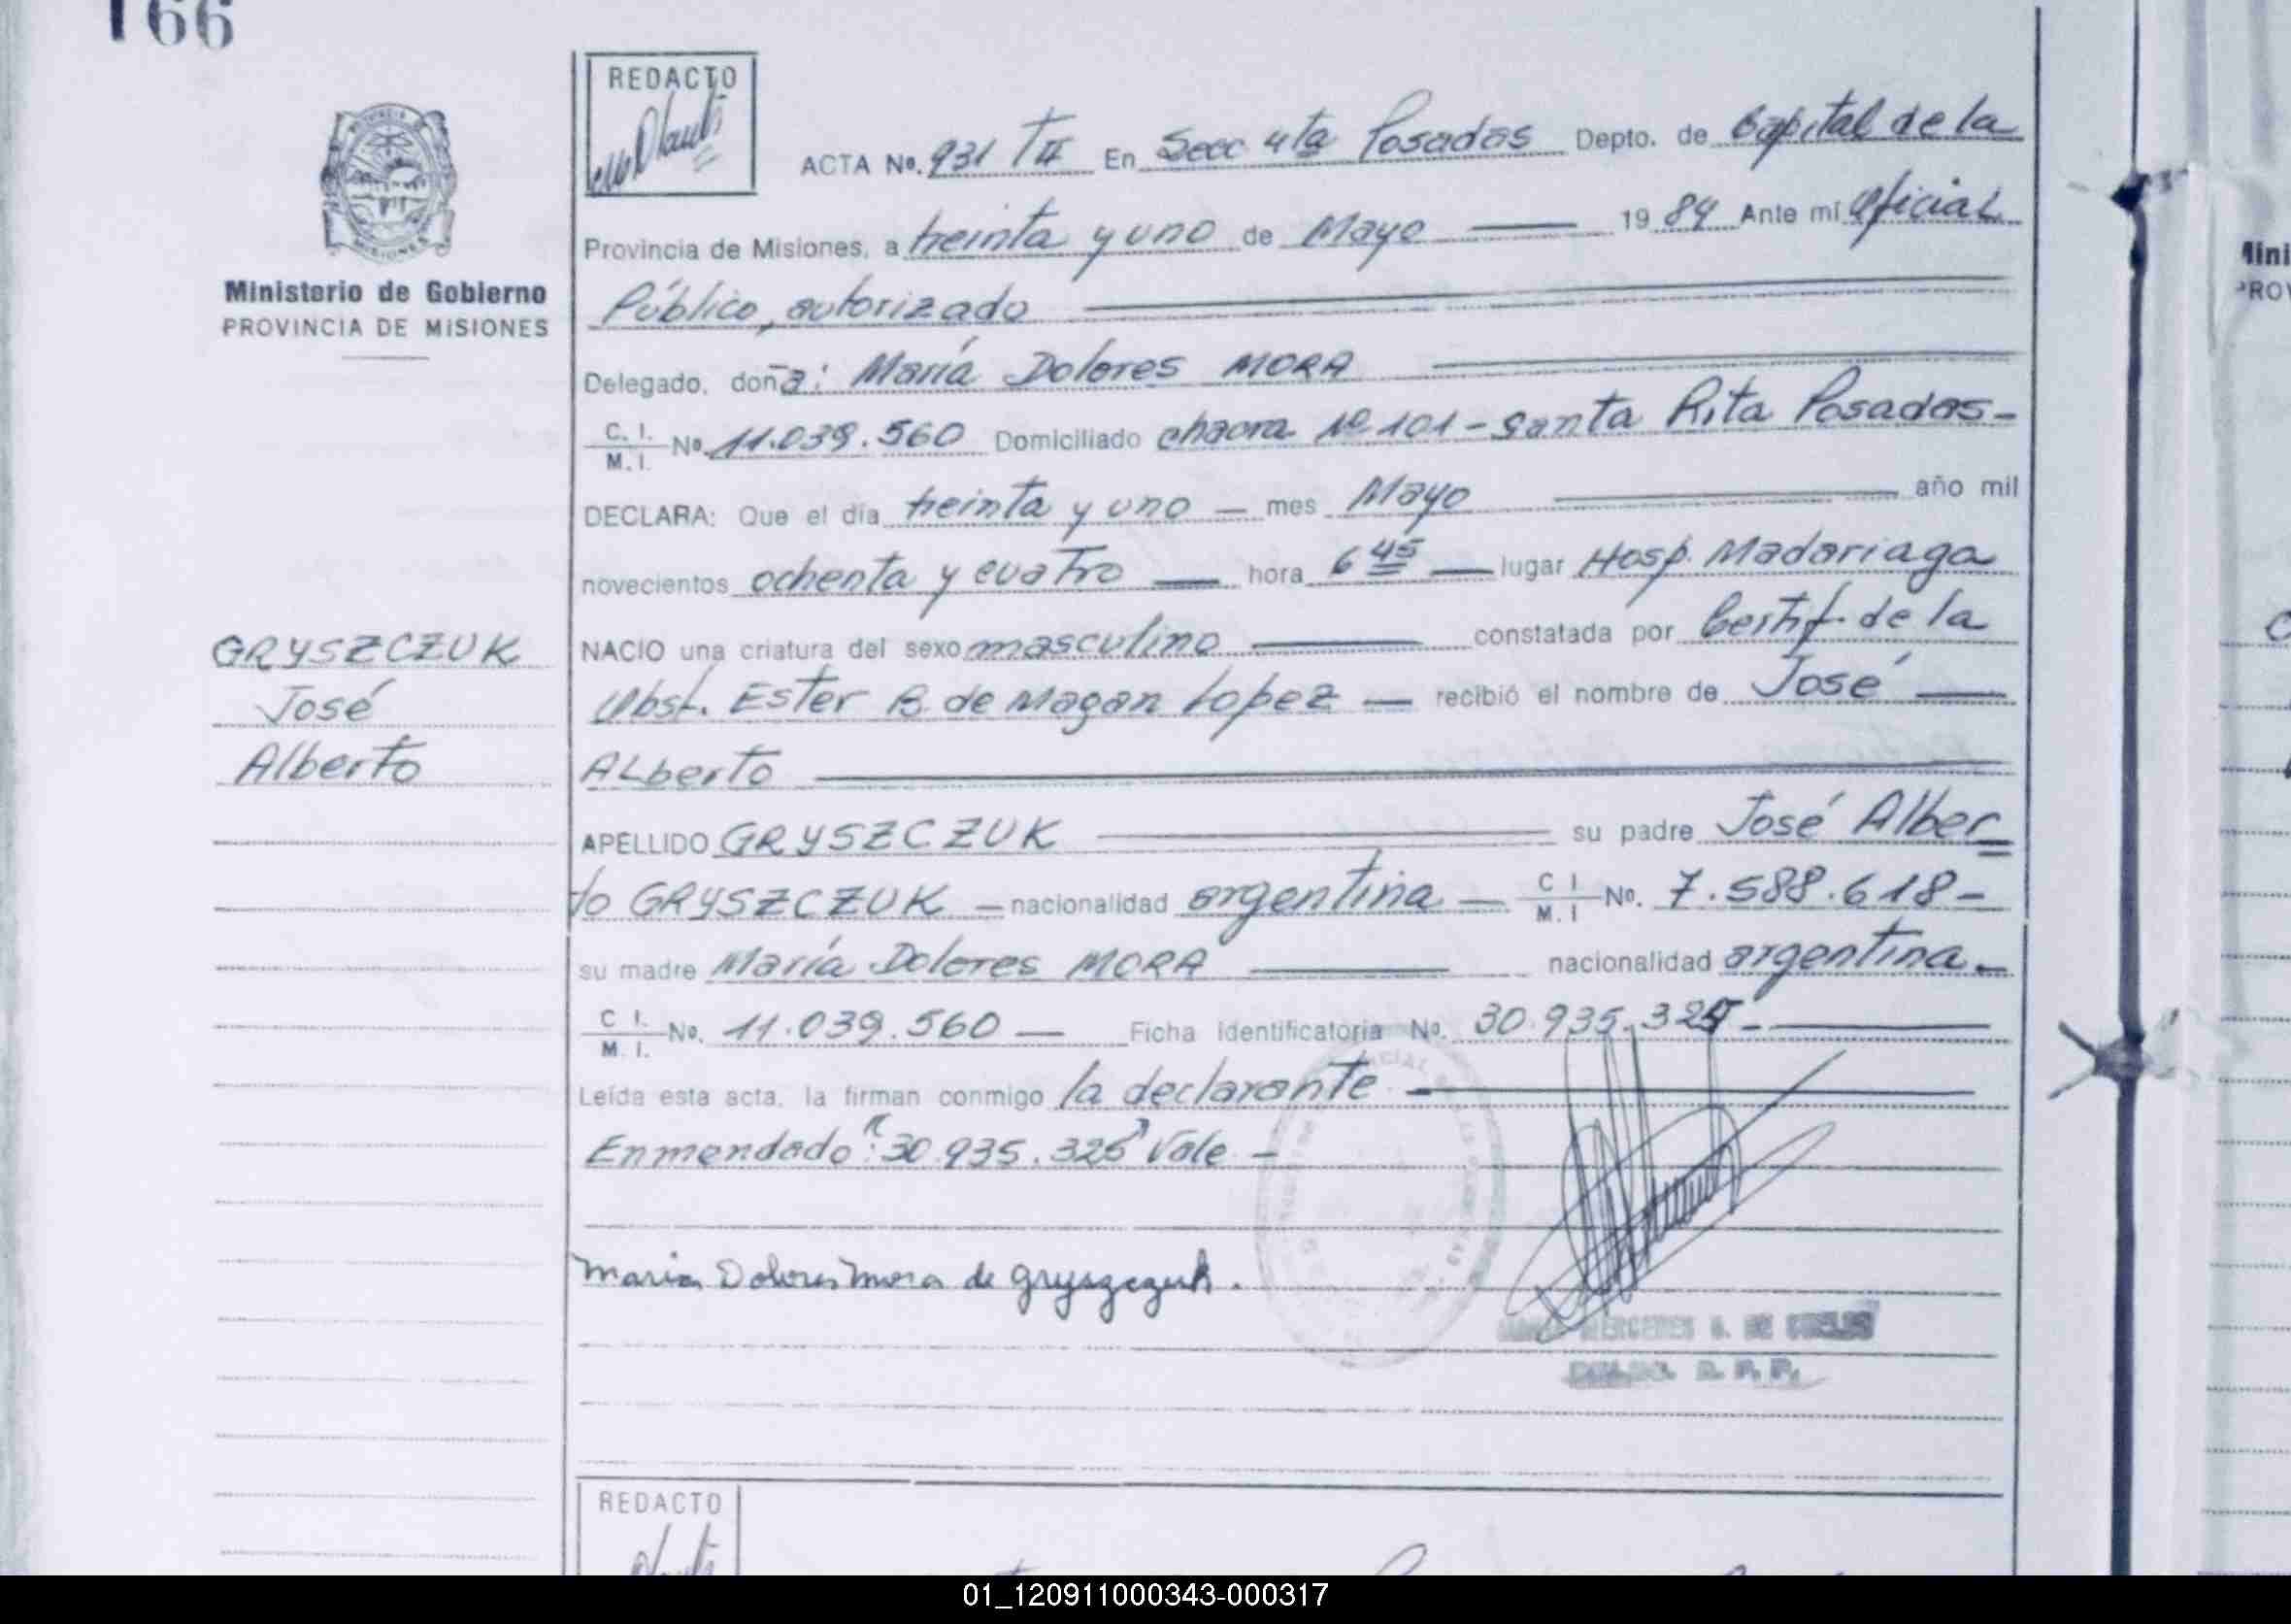 166
REDACTO
ACTA Nº. 931 TII En Secc 4ta Posadas Depto. de Capital de la
Provincia de Misiones, a treinta y uno de Mayo 1984 Ante mí Oficial
Público, autorizado
Delegado, doña: María Dolores MORA
C. I. / M. I. Nº 11.039.560 Domiciliado chacra Nº 101 - Santa Rita Posadas -
DECLARA: Que el día treinta y uno — mes Mayo año mil
novecientos ochenta y cuatro — hora 6 45 — lugar Hosp. Madariaga
NACIO una criatura del sexo masculino constatada por Certif. de la
Obst. Ester B. de Magan Lopez — recibió el nombre de José
Alberto
APELLIDO GRYSZCZUK su padre José Alber
to GRYSZCZUK — nacionalidad argentina — C I / M. I Nº. 7.588.618 -
su madre María Dolores MORA nacionalidad argentina -
C I. / M. I. Nº. 11.039.560 — Ficha Identificatoria Nº. 30.935.325 -
Leída esta acta, la firman conmigo la declarante
Enmendado: "30.935.325" Vale -
Maria Dolores Mora de Gryszczuk.
MERCEDES
MISIONES
Ministerio de Gobierno
PROVINCIA DE MISIONES
GRYSZCZUK
José
Alberto
REDACTO
01_120911000343-000317